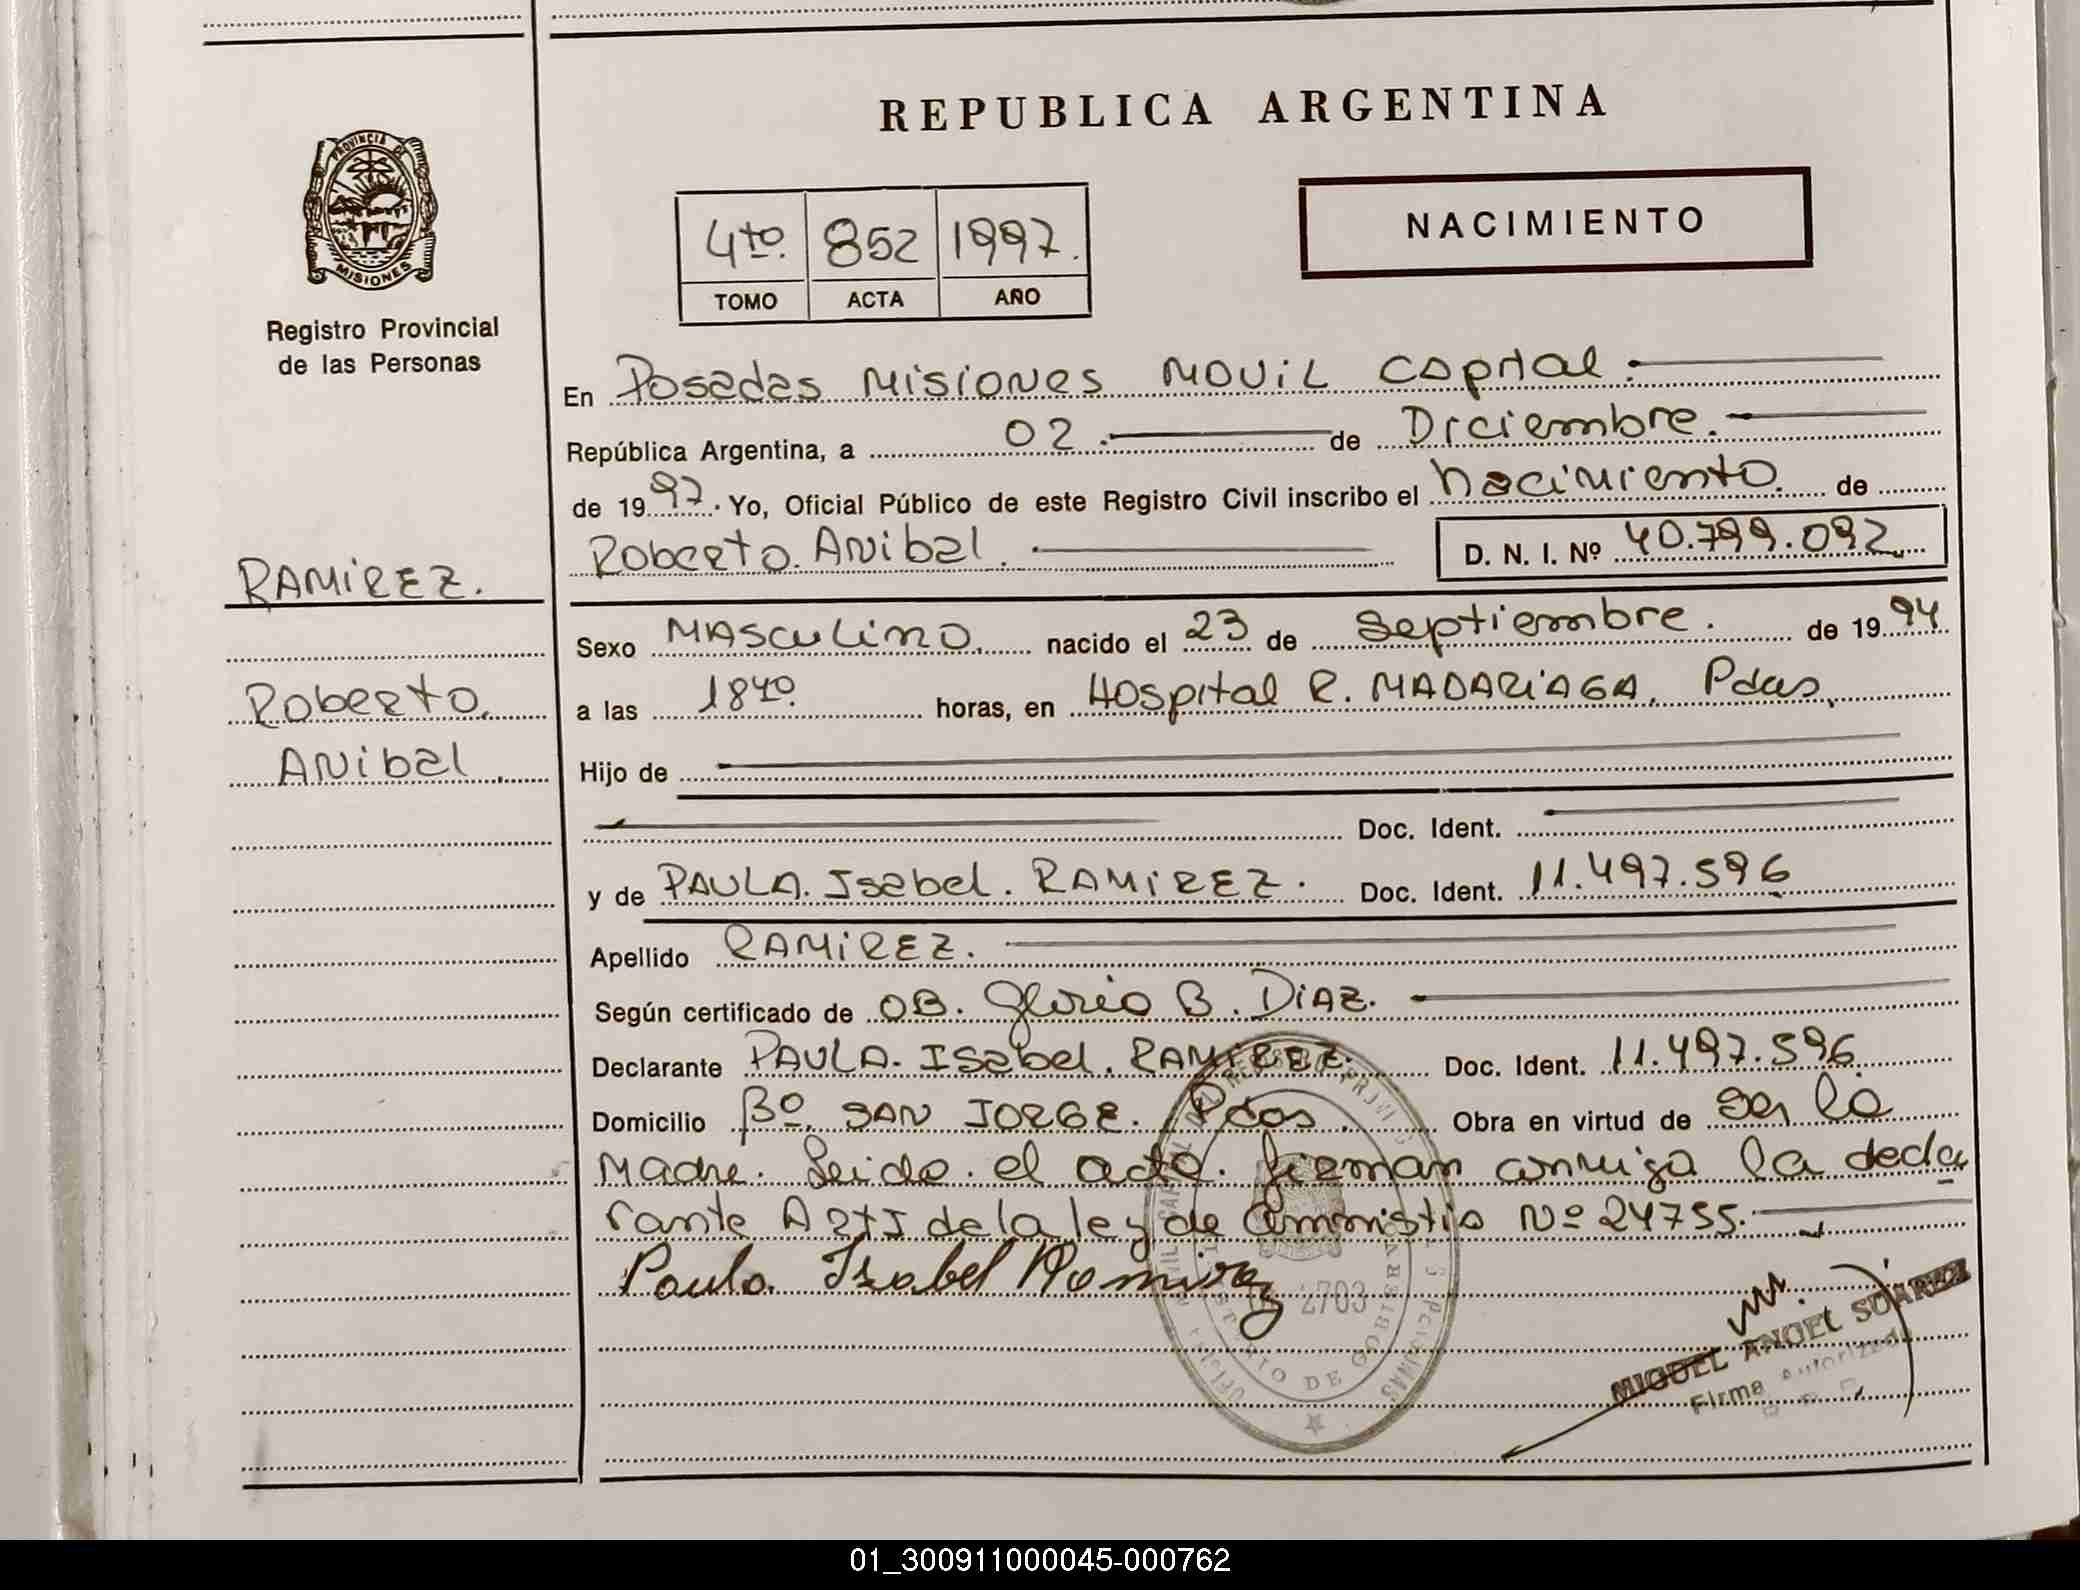 REPUBLICA ARGENTINA
PROVINCIA DE
MISIONES
Registro Provincial
de las Personas
4to. 852 1997.
TOMO ACTA AÑO
NACIMIENTO
En Posadas Misiones Movil Capital.
República Argentina, a 02. de Diciembre.
de 1997. Yo, Oficial Público de este Registro Civil inscribo el Nacimiento. de
Roberto. Anibal. D. N. I. Nº 40.799.092
RAMIREZ.
Roberto.
Anibal
Sexo MASCULINO. nacido el 23 de Septiembre. de 1994
a las 1840. horas, en Hospital R. MADARIAGA. Pdas,
Hijo de
Doc. Ident.
y de PAULA. Isabel. RAMIREZ. Doc. Ident. 11.497.596
Apellido RAMIREZ.
Según certificado de OB. Gloria B. DIAZ.
Declarante PAULA. Isabel. RAMIREZ. Doc. Ident. 11.497.596
Domicilio Bº. SAN JORGE. Pdas. Obra en virtud de ser la
Madre. Leida. el acta. firman conmigo la decla
rante Art I de la ley de amnistia Nº 24755.
Paula. Isabel Ramirez
2703
MINISTERIO DE GOBIERNO
MIGUEL ANGEL SUAREZ
Firma Autorizada
01_300911000045-000762